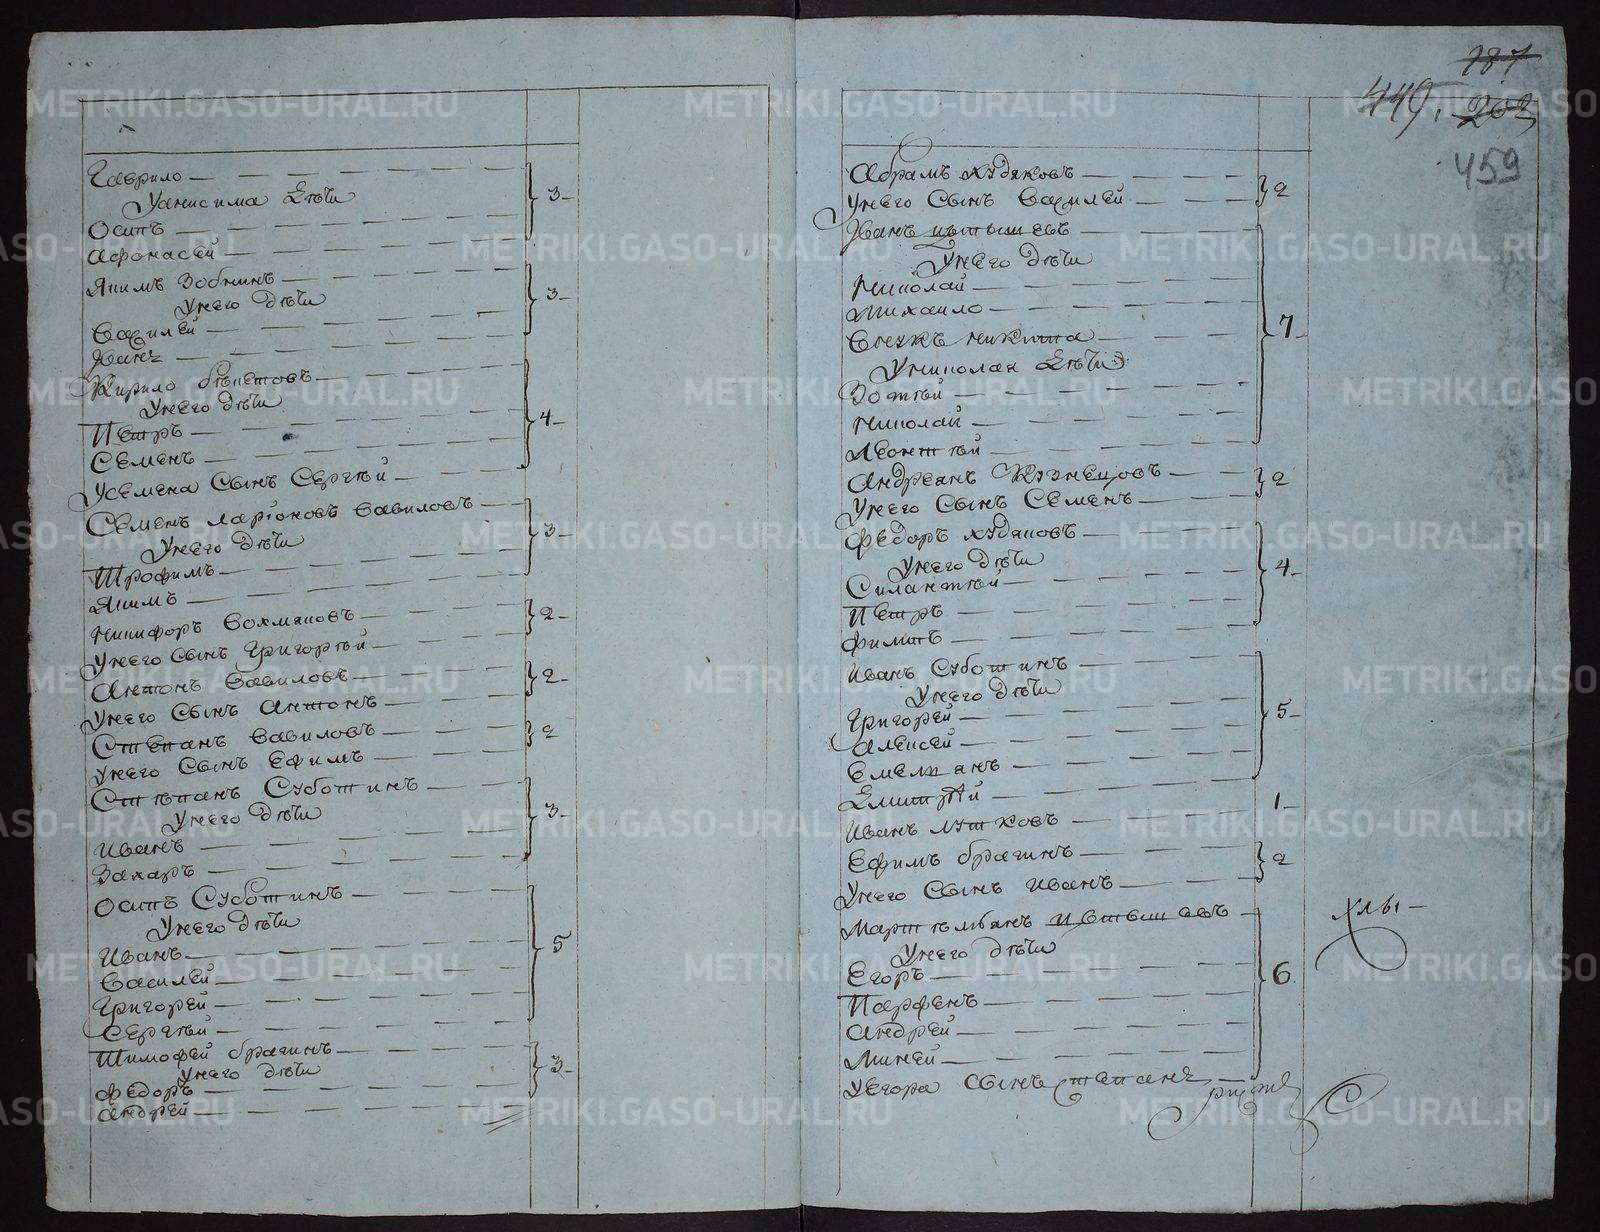 Гаврило
У анисима дети
Осипъ
Афонасей
Якимъ Зобнинъ
У него дети
Василей
Иванъ
Кирило
У него дети
Петръ
Семенъ
У семена сынъ Сергей
Семенъ ларіоновъ вавиловъ
У него дети
Трофимъ
Якимъ
Никифоръ Вохмяковъ
У него сынъ Григорей
Антонъ вавиловъ
У него сынъ антонъ
Степанъ вавиловъ
У него сынъ Ефимъ
Степанъ Суботинъ
У него дети
Иванъ
Захаръ
Осипъ Суботинъ
У него дети
Иванъ
Василей
Григорей
Сергей
Тимофей брагинъ
У него дети
Федоръ
Андрей
3
3
4
3
2
2
2
3
5
3
187
449. 203
459
Абрамъ худяковъ
У него сынъ василей
Иванъ
У него дети
Николай
Михаило
Внукъ никита
У николая дети
Зотей
Николай
Леонтей
Андреанъ Кузнецовъ
У него сынъ Семенъ
Федоръ худяковъ
У него дети
Силантей
Петръ
Филипъ
Иванъ Суботинъ
У него дети
Григорей
Алексей
Емельянъ
Иванъ лутковъ
Ефимъ брагинъ
У него сынъ иванъ
У него дети
Егоръ
Парфенъ
Андрей
Миней
У егора сынъ степанъ
2
7
2
4
5
1
2
6
METRIKI.GASO-URAL.RU